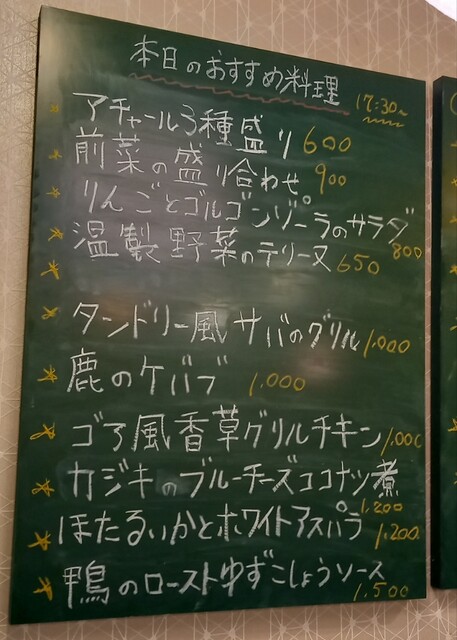 本日のおすすめ料理 17:30~
アチャール3種盛り 600
前菜の盛り合わせ 900
りんごとゴルゴンゾーラのサラダ 800
温製野菜のテリーヌ 650
タンドリー風サバのグリル 1,000
鹿のケバブ 1,000
ゴア風香草グリルチキン 1,000
カジキのブルーチーズココナッツ煮 1,200
ほたるいかとホワイトアスパラ 1,200
鴨のローストゆずこしょうソース 1,500